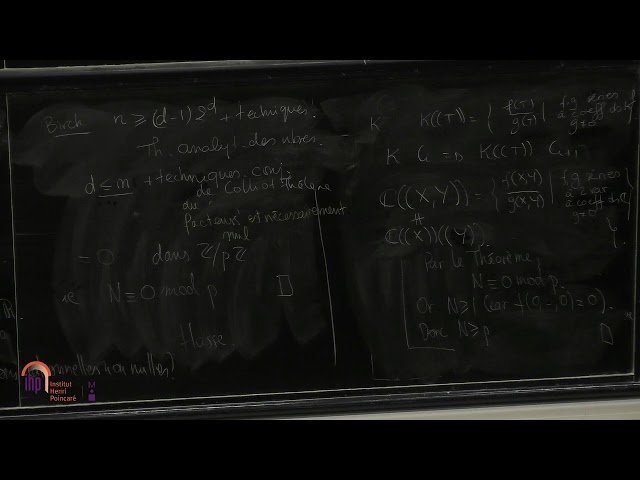 Birch n ≥ (d-1) 2^d + techniques
Th. analyt. des nbres.
d ≤ n + techniques, conj.
de Colliot Thélène
du
facteurs et nécessairement
nul
= 0 dans Z/pZ
ie N ≡ 0 mod p □
Hasse
nulles)
K K((T)) = { f(T)/g(T) | f, g séries à coeff do K g≠0 }
K C_i ⇒ K((T)) C_i+1
C((X,Y)) = { f(X,Y)/g(X,Y) | f, g séries à 2 var à coeff ds C g≠0 }
≠
C((X))((Y))
Par le Théorème,
N ≡ 0 mod p.
Or N ≥ 1 (car f(0,-,0) = 0).
Donc N ≥ p □
ihp Institut
Henri
Poincaré